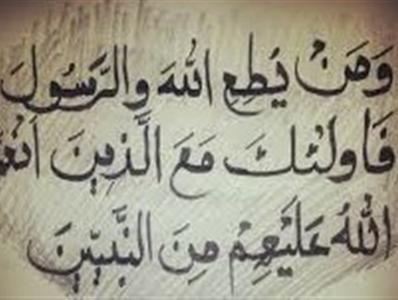 وَمَنْ يُطِعِ اللهَ وَالرَّسُولَ
فَاولٰئِكَ مَعَ الَّذِينَ اَنْعَ
اللهُ عَلَيْهِمْ مِنَ النَّبِيّٖنَ